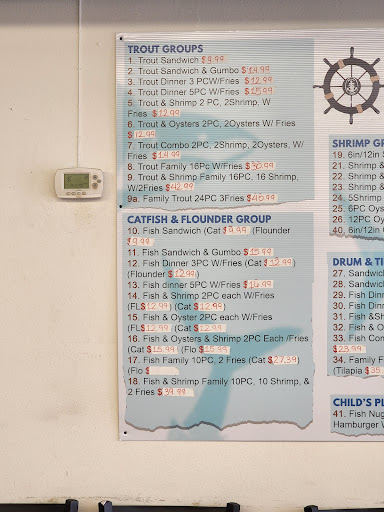 TROUT GROUPS
1. Trout Sandwich $9.99
2. Trout Sandwich & Gumbo $14.99
3. Trout Dinner 3 PCW/Fries $12.99
4. Trout Dinner 5PC W/Fries $15.99
5. Trout & Shrimp 2 PC, 2Shrimp, W
Fries $12.99
6. Trout & Oysters 2PC, 2Oysters W/ Fries
$12.99
7. Trout Combo 2PC, 2Shrimp, 2Oysters, W/
Fries $14.99
8. Trout Family 16Pc W/Fries $30.99
9. Trout & Shrimp Family 16PC, 16 Shrimp,
W/2Fries $42.99
9a. Family Trout 24PC 3Fries $45.99
CATFISH & FLOUNDER GROUP
10. Fish Sandwich (Cat $9.99 (Flounder
$9.99
11. Fish Sandwich & Gumbo $15.99
12. Fish Dinner 3PC W/Fries (Cat $12.99)
(Flounder $12.99)
13. Fish dinner 5PC W/Fries $16.99
14. Fish & Shrimp 2PC each W/Fries
(FL$12.99) (Cat $12.99)
15. Fish & Oyster 2PC each W/Fries
(FL$12.99 (Cat $12.99
16. Fish & Oysters & Shrimp 2PC Each /Fries
(Cat $15.99 (Flo $15.99
17. Fish Family 10PC, 2 Fries (Cat $27.39)
(Flo $
18. Fish & Shrimp Family 10PC, 10 Shrimp, &
2 Fries $39.99
SHRIMP GR
19. 6in/12in S
21. Shrimp &
22. Shrimp &
23. Shrimp &
24. 5Shrimp
25. 6PC Oys
26. 12PC Oy
40. 6in/12in
DRUM & TI
27. Sandwic
28. Sandwic
29. Fish Dinn
30. Fish Dinn
31. Fish &Sh
32. Fish & O
33. Fish Con
$23.99
34. Family F
(Tilapia $35.
CHILD'S PL
41. Fish Nug
Hamburger W